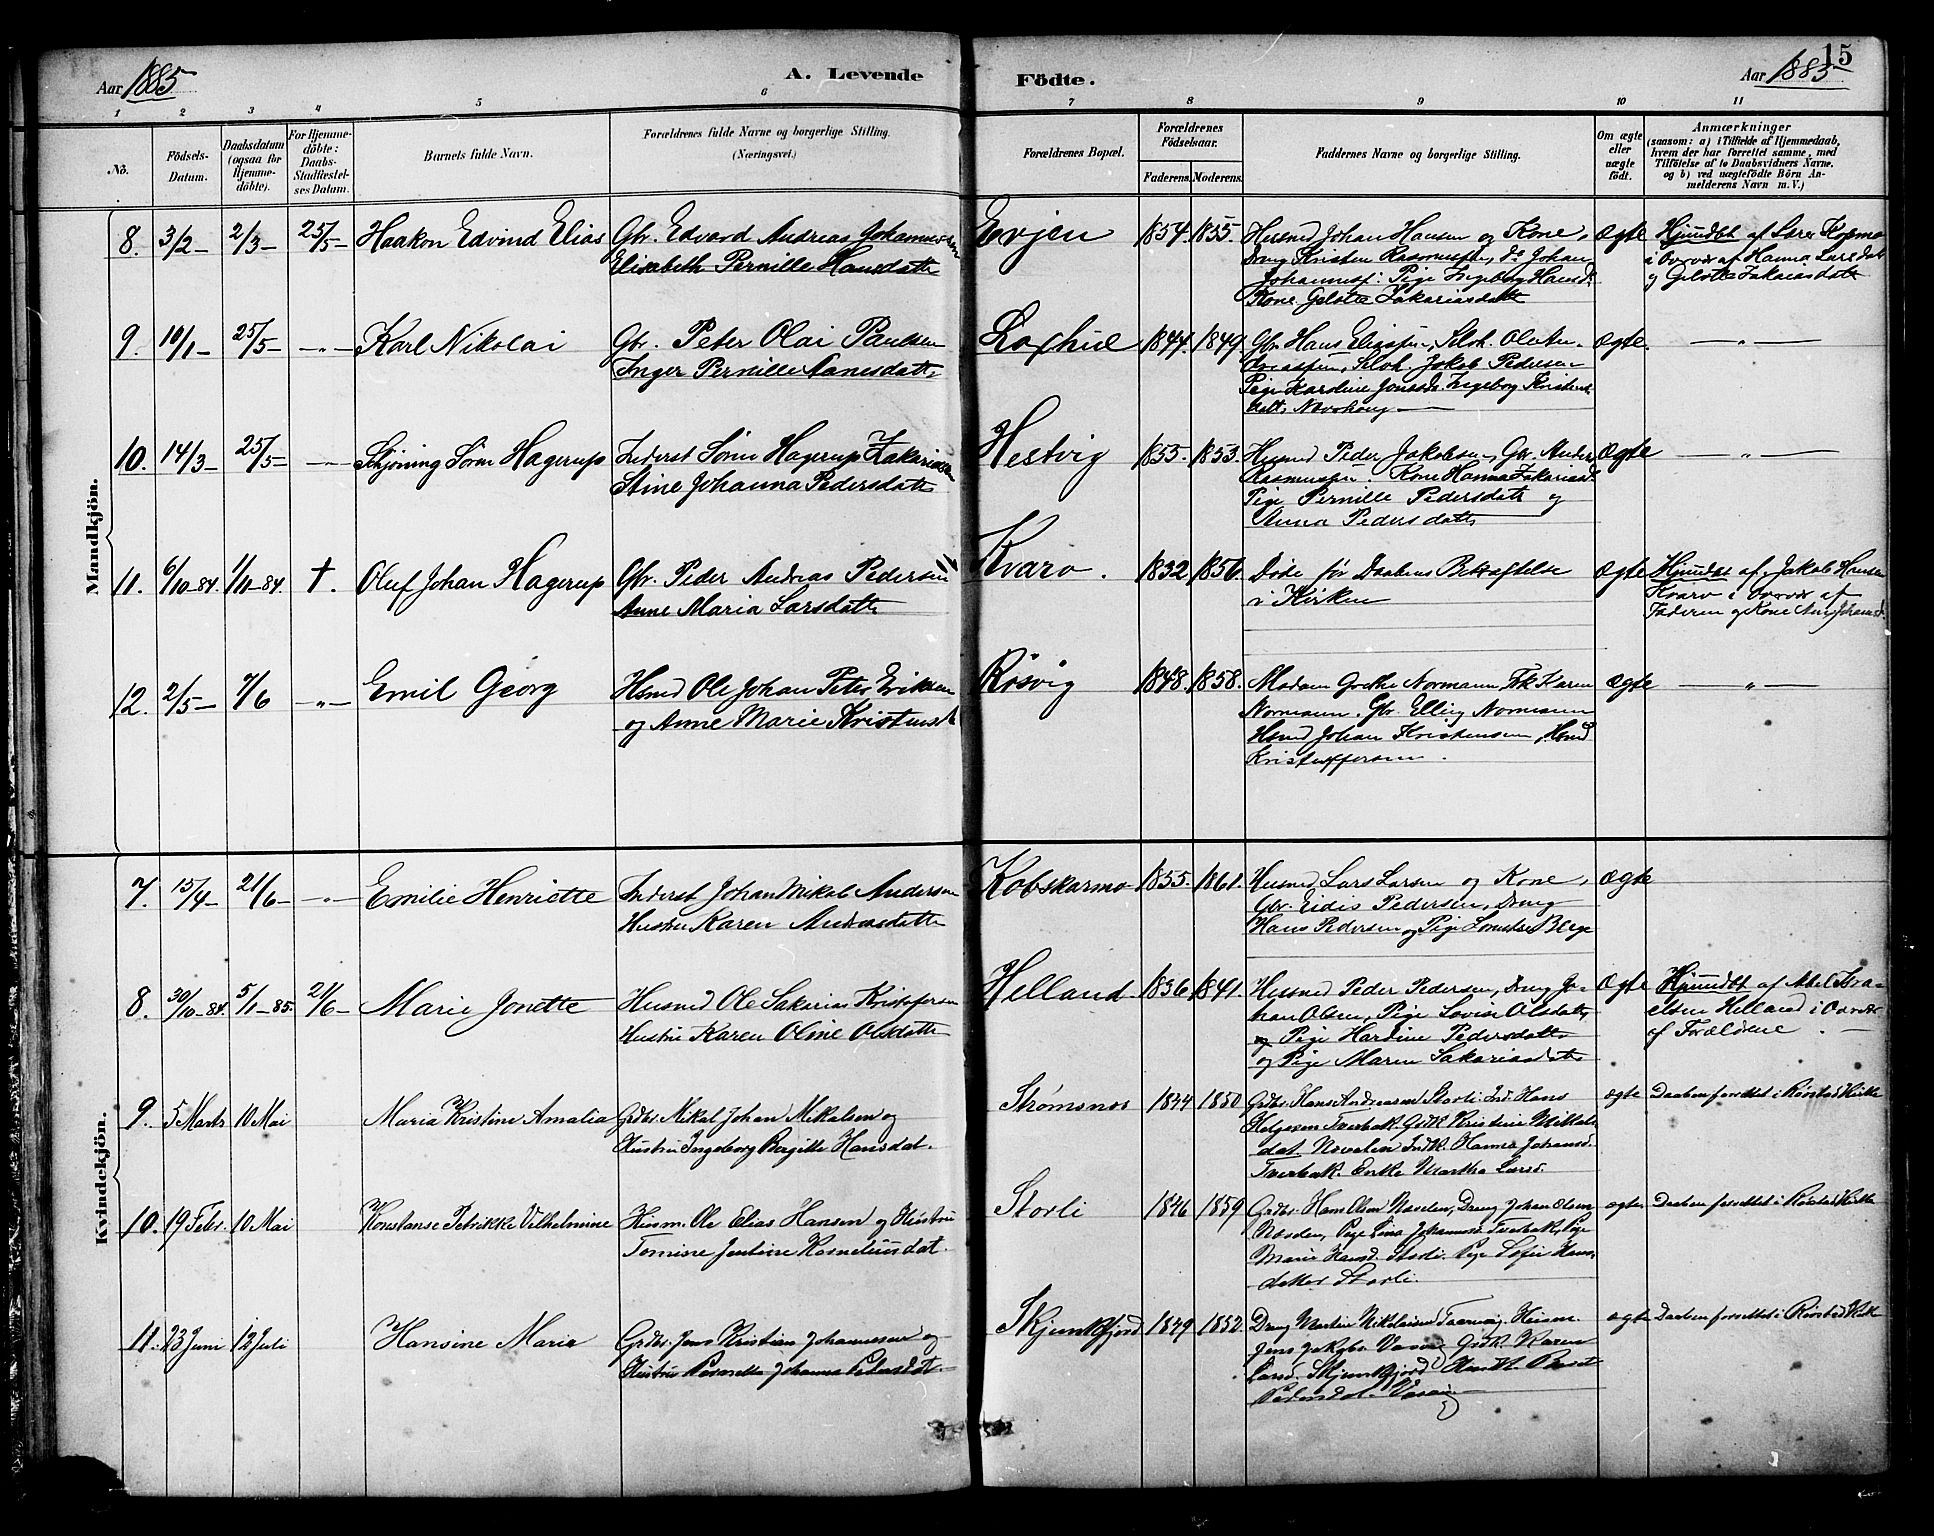 Aar 1885
A. Levende
Födte.
Aar 1885
15
1 2 3 4 5 6 7 8 9 10 11
No.
Födsels-Datum.
Daabsdatum (ogsaa for Hjemmedöbte).
For Hjemmedöbte: Daabs-Stadfæstelses Datum.
Barnets fulde Navn.
Forældrenes fulde Navne og borgerlige Stilling. (Næringsvei.)
Forældrenes Bopæl.
Forældrenes Födselsaar.
Faderens. Moderens.
Faddernes Navne og borgerlige Stilling.
Om ægte eller uægte födt.
Anmærkninger (saasom: a) i Tilfælde af Hjemmedaab, hvem der har forrettet samme, med Tilföielse af to Daabsvidners Navne, og b) ved uægtefödte Börn Anmelderens Navn m. V.)
Mandkjön.
8. 3/2 – 2/3 – 25/5 – Haakon Edvind Elias
Gbr. Edvard Andreas Johannessen
Elisabeth Pernille Hansdatt
Evjen 1854. 1855.
Husmd Johan Hansen og Kone,
Dreng Kristen Rasmussen, do Johan
Johannessn: Pige Ingeborg Hansd.
Kone Gelotte Zakariasdatt
ægte
Hjmdbt af Lærer Kopmo
i Overv. af Hanna Larsdat
og Gelotte Zakariasdatt
9. 10/1 – 25/5 – – „ – Karl Nikolai
Gbr. Peter Olai Paulsen
Inger Pernille Aanesdatt
1844. 1849.
Gbr. Hans Eliassen, Selvh. Ole An-
dreassen, Selvh. Jakob Pedersen
Pige Karoline Jonsd. Ingeborg Kristens
datt,
ægte. – „ –
10. 14/3 – 25/5 – – „ – Skjöning Sörn Hagerup
Inderst Sörn Hagerup Zakariassen
Stine Johanna Pedersdatt
Hestvig 1855. 1853.
Husmd Peder Jakobsen, Gbr. Anders
Rasmussen. Kone Hanna Zakariasd
Pige Pernille Pedersdatt og
Anna Pedersdatt
ægte – „ –
11. 6/10–84. 1/11–84. †. Oluf Johan Hagerup
Gbr. Peder Andreas Pedersen
Anne Maria Larsdatt
Kvarv. 1832 1856.
Döde för Daabens Bekræftelse
i Kirken
ægte
Hjmdbt af Jakob Hansen
Kvarv i Overvær af
Faderen og Kone Ane Johansd.
12. 2/5 – 7/6 – „ – Emil Georg
Hsmd Ole Johan Peter Eriksen
og Anne Marie Kristensd
Røsvig 1848. 1858.
Madam Grethe Normann, Frk Karen
Normann. Gbr. Elling Normann
Hsmd Johan Kristensen, Hsmd
Kristoffersen.
ægte – „ –
Kvindekjön.
7. 15/4 – 21/6 – – „ – Emilie Henriette
Inderst Johan Mikal Andersen
Hustru Karen Andreasdatt
Kobskarmo 1855. 1861.
Husmd Lars Larsen og Kone,
Gbr. Eidis Pedersen, Dreng
Hans Pedersen og Pige
ægte
8. 30/10–84. 5/1–85. 21/6 – Marie Jonette
Husmd Ole Sakarias Kristofersen
Hustru Karen Oline Olsdatt
Helland 1836 1841.
Husmd Peder Pedersen, Dreng Jo-
han Olsen, Pige Lovise Olsdatt,
og Pige Hardine Pedersdatt
og Pige Maren Sakariasdatt
ægte
Hjmdbt af Abel Isra-
elsen Helland i Overvær
af Forældrene. –
9. 5 Marts 10 Mai Maria Kristine Amalia
Grdbr. Mikal Johan Mikalsen og
Hustru Ingeborg Bergitte Hansdat.
Strømsnes 1844 1850
Grdbr. Hans Andreasen Storli. Ind. Hans
Helgesen Tverbak. Grdk Kristine Mikkels
dat. Novalien Indk. Hanna Johansd.
Tverbak. Enke Martha Larsd.
ægte Daaben forrettet i Rørstad Kirke
10. 19 Febr. 10 Mai Konstanse Petrikke Vilhelmine
Husm. Ole Elias Hansen og Hustru
Tomine Jentine Korneliusdat.
Storli 1846 1859
Grdbr. Hans Olsen Nosden, Dreng Johan Olsen
Nosden, Pige Johannesd. Tverbak, Pige
Marie Hansd. Storli. Pige Sofie Hans
datter Storli.
ægte Daaben forrettet i Rørstad Kirke
11. 23 Juni 12 Juli Hansine Maria
Grdbr. Jens Kristian Johannesen og
Hustru Johanna Pedersdat.
Skjunkfjord 1849 1852.
Dreng Martin Nikolaisen Husm.
Jens Jakobs. Grdk. Karen
Larsd. Skjunkfjord
Pedersdat.
ægte Daaben forrettet i Rørstad Kirke